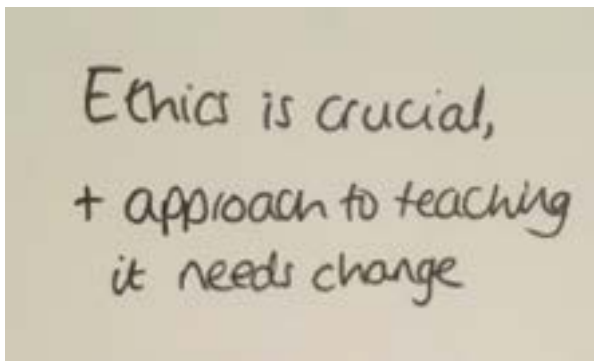 Ethics is crucial,
+ approach to teaching
it needs change